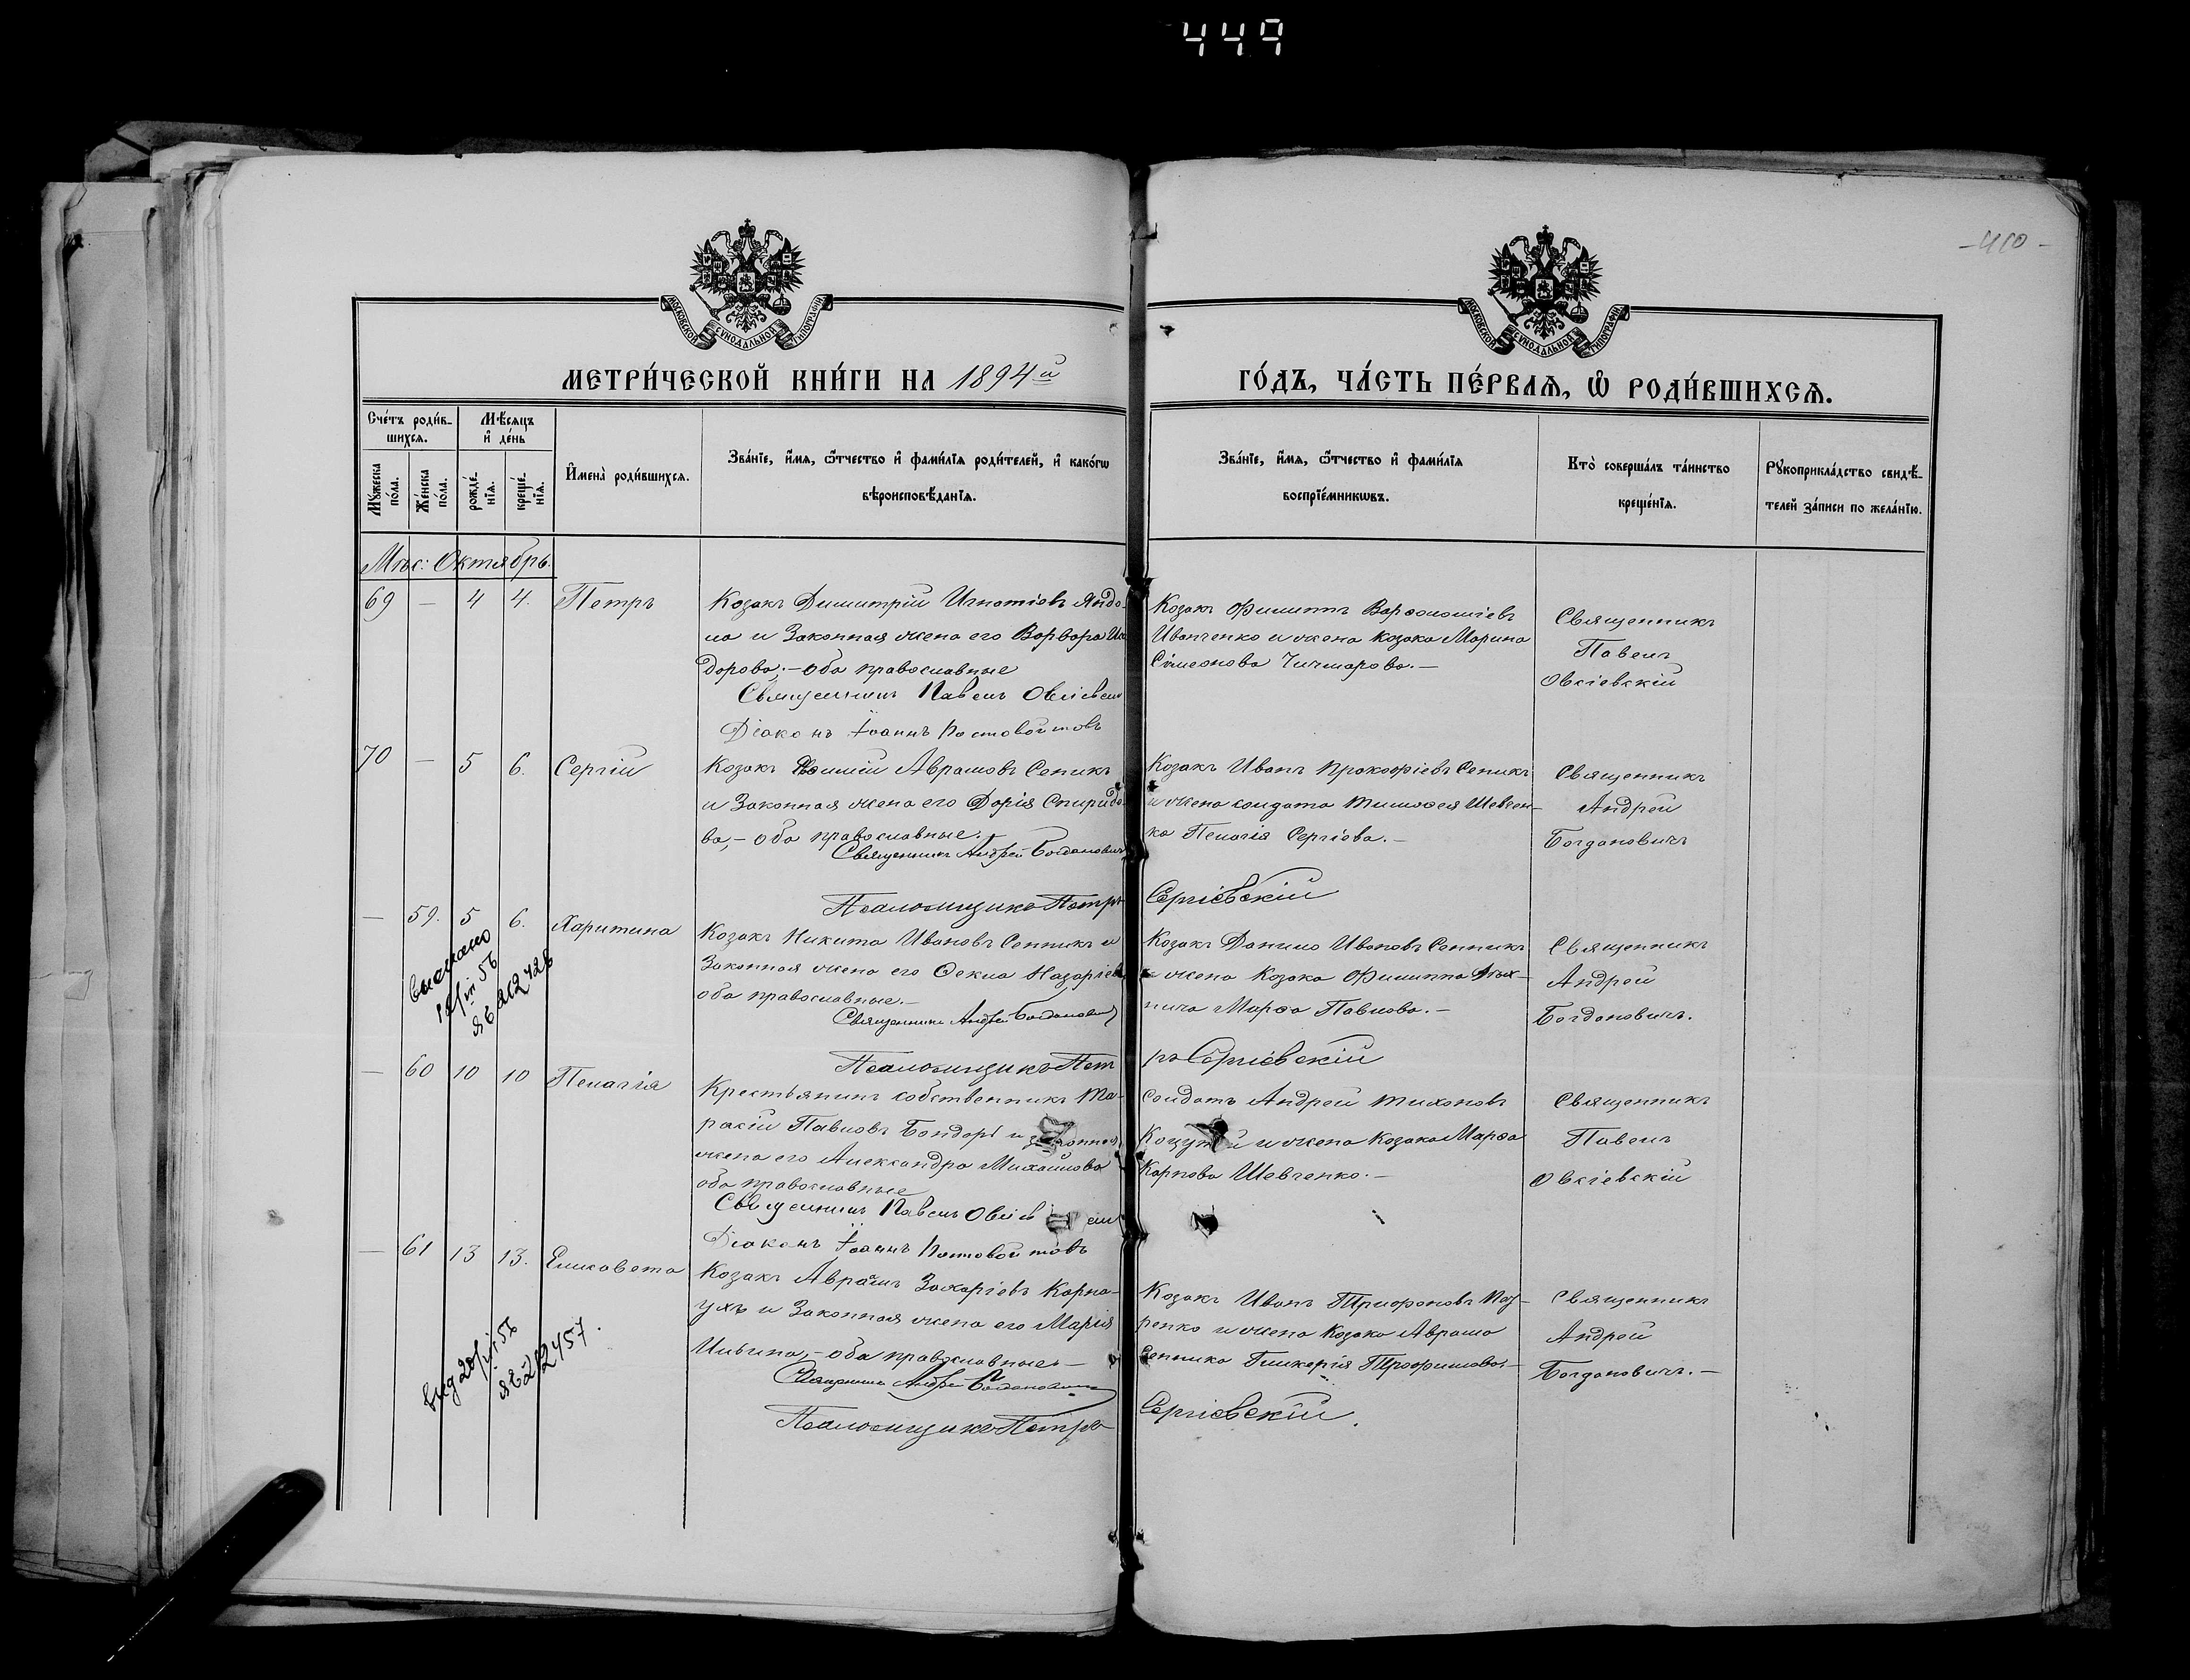 449
-410-
МОСКОВСКОЙ СѴНОДАЛЬНОЙ ТИПОГРАФІИ
МОСКОВСКОЙ СѴНОДАЛЬНОЙ ТИПОГРАФІИ
МЕТРИ́ЧЕСКОЙ КНИ́ГИ НА 1894й
ГО́ДЪ, ЧА́СТЬ ПЕ́РВАѦ, Ѡ҆ РОДИ́ВШИХСѦ.
Сче́тъ роди́в-
шихсѧ.
Мѣ́сѧцъ
и҆ де́нь
Мꙋ́жеска по́ла.
Же́нска по́ла.
рожде́-
нїѧ.
креще́-
нїѧ.
И҆мена̀ роди́вшихсѧ.
Зва́нїе, и҆́мѧ, ѻ҆́тчество и҆ фами́лїѧ роди́телей, и҆ како́гѡ
вѣроисповѣ́данїѧ.
Зва́нїе, и҆́мѧ, ѻ҆́тчество и҆ фами́лїѧ
воспрїе́мникѡвъ.
Кто̀ соверша́лъ та́инство
креще́нїѧ.
Рꙋкоприкла́дство свидѣ́-
телей за́писи по жела́нїю.
Мѣс: Октябрь.
69 — 4 4. Петръ
Козакъ Димитрій Игнатіевъ Яндо-
ла и Законная жена его Варвара Иси
дорова; — оба православные
Священникъ Павелъ Овсіевскій
Діаконъ Іоаннъ Постовойтовъ
Козакъ Филиппъ Варфоломіевъ
Иванченко и жена козака Марина
Симеонова Чичмарова. —
Священникъ
Павелъ
Овсіевскій
70 — 5 6. Сергій
Козакъ Авраамовъ Сенникъ
и Законная жена его Дарія Спиридо-
ва, — оба православные.
Священникъ Андрей Богдановичъ
Псаломщикъ Петръ Сергіевскій
Козакъ Иванъ Прокофіевъ Сенникъ
и жена солдата Тимофея Шевчен-
ка Пелагія Сергіева. —
Священникъ
Андрей
Богдановичъ
— 59. 5 6. Харитина
Выслано
12/VII 56
ЯЕ 212428
Козакъ Никита Ивановъ Сенникъ и
Законная жена его Фекла Назаріева
оба православные. —
Священникъ Андрей Богдановичъ
Псаломщикъ Петръ Сергіевскій
Козакъ Данило Ивановъ Сенникъ
и жена Козака Филиппа
Марфа Павлова. —
Священникъ
Андрей
Богдановичъ.
— 60 10 10 Пелагія
Крестьянинъ собственникъ Та-
расій Павловъ Бондарь и законная
жена его Александра Михайлова
оба православные
Священникъ Павелъ Овсіевскій
Діаконъ Іоаннъ Постовойтовъ
Солдатъ Андрей Тихоновъ
и жена Козака Марфа
Карпова Шевченко. —
Священникъ
Павелъ
Овсіевскій
— 61 13 13. Елисавета
Выд 20/VII 56
ЯЕ 212457.
Козакъ Авраамъ Захаріевъ Карна-
ухъ и Законная жена его Марія
Ильина, — оба православные —
Священникъ Андрей Богдановичъ
Псаломщикъ Петръ Сергіевскій.
Козакъ Иванъ Трифоновъ Наз-
ренко и жена Козака Авраама
Сенника Гликерія Трофимова. —
Священникъ
Андрей
Богдановичъ. —